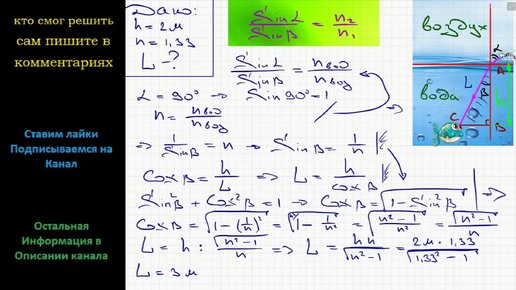 кто смог решить
сам пишите в
комментариях
Ставим лайки
Подписываемся на
Канал
Остальная
Информация в
Описании канала
Дано:
h = 2 м
n = 1,33
L - ?
Sin α / Sin β = n₂ / n₁
Sin α / Sin β = nвод / nвозд
α = 90° → Sin 90° = 1
n = nвод / nвозд
⇒ 1 / Sin β = n ⇒ Sin β = 1 / n
Cos β = h / L ⇒ L = h / cos β
Sin² β + Cos² β = 1 → Cos β = √(1 - Sin² β)
Cos β = √(1 - (1/n)²) = √(1 - 1/n²) = √((n² - 1) / n²) = √(n² - 1) / n
L = h : √(n² - 1) / n ⇒ L = h n / √(n² - 1) = 2 м · 1,33 / √(1,33² - 1²)
L = 3 м
воздух
α
A
вода
L
h
β
C
B